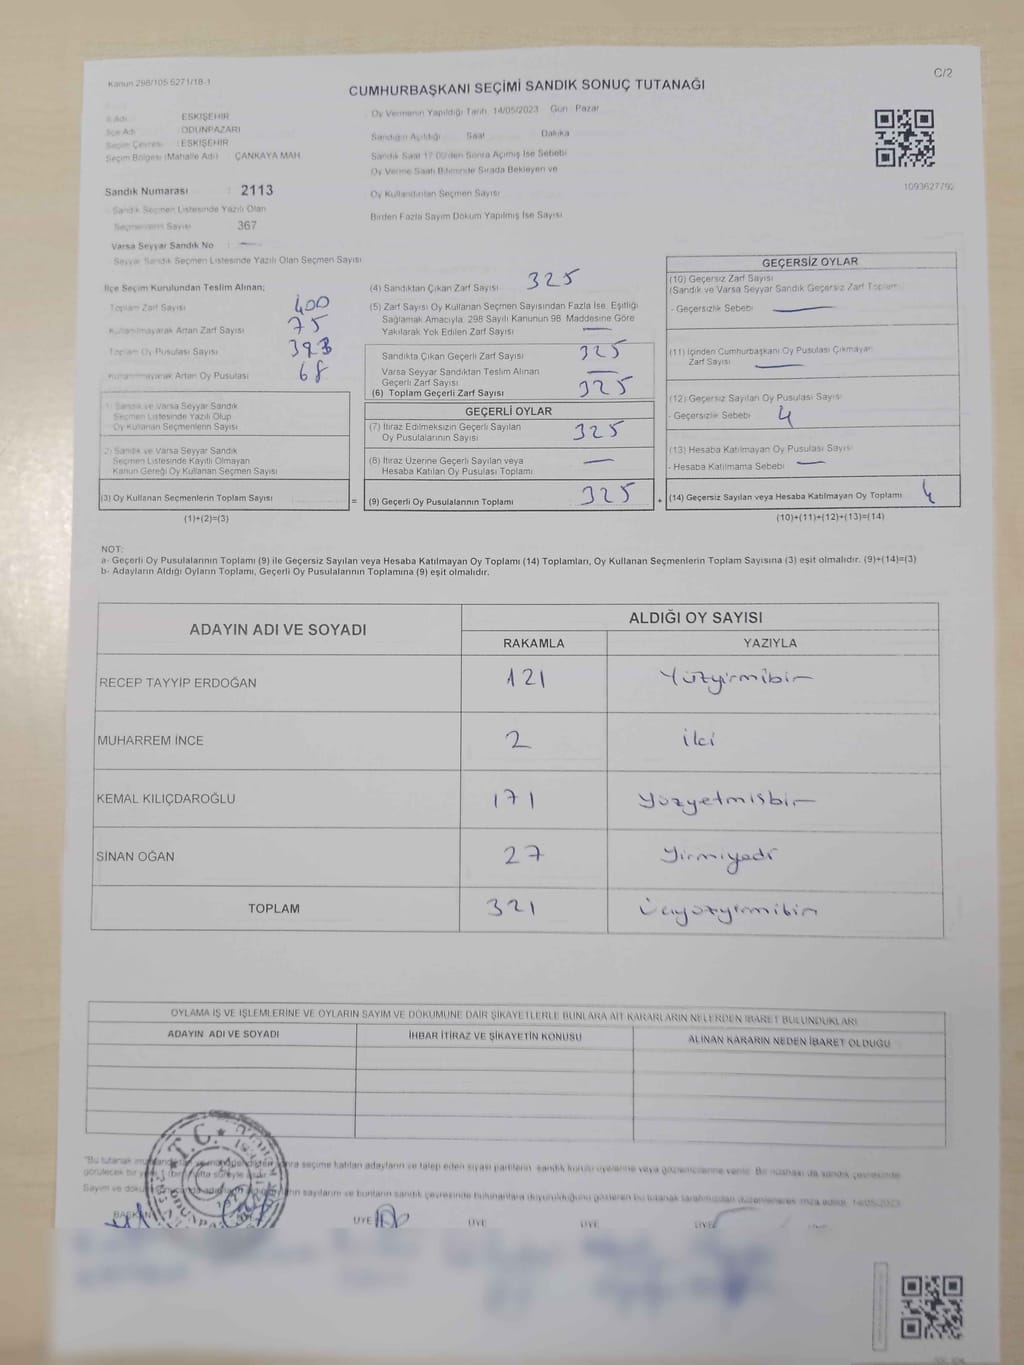 Kanun 298/105 5271/18-1
C/2
CUMHURBAŞKANI SEÇİMİ SANDIK SONUÇ TUTANAĞI
İl Adı ESKİŞEHİR
İlçe Adı ODUNPAZARI
Seçim Çevresi : ESKİŞEHİR
Seçim Bölgesi (Mahalle Adı) ÇANKAYA MAH.
Sandık Numarası : 2113
Sandık Seçmen Listesinde Yazılı Olan
Seçmenlerin Sayısı 367
Varsa Seyyar Sandık No : —
Seyyar Sandık Seçmen Listesinde Yazılı Olan Seçmen Sayısı
Oy Vermenin Yapıldığı Tarih 14/05/2023 Gün Pazar
Sandığın Açıldığı Saat Dakika
Sandık Saat 17.00'den Sonra Açılmış İse Sebebi
Oy Verme Saati Bitiminde Sırada Bekleyen ve
Oy Kullandırılan Seçmen Sayısı
Birden Fazla Sayım Döküm Yapılmış İse Sayısı
1093627792
İlçe Seçim Kurulundan Teslim Alınan;
Toplam Zarf Sayısı 400
Kullanılmayarak Artan Zarf Sayısı 75
Toplam Oy Pusulası Sayısı 393
Kullanılmayarak Artan Oy Pusulası 68
(1) Sandık ve Varsa Seyyar Sandık
Seçmen Listesinde Yazılı Olup
Oy Kullanan Seçmenlerin Sayısı
(2) Sandık ve Varsa Seyyar Sandık
Seçmen Listesinde Kayıtlı Olmayan
Kanun Gereği Oy Kullanan Seçmen Sayısı
(3) Oy Kullanan Seçmenlerin Toplam Sayısı
(1)+(2)=(3)
(4) Sandıktan Çıkan Zarf Sayısı 325
(5) Zarf Sayısı Oy Kullanan Seçmen Sayısından Fazla İse, Eşitliği
Sağlamak Amacıyla, 298 Sayılı Kanunun 98. Maddesine Göre
Yakılarak Yok Edilen Zarf Sayısı —
Sandıkta Çıkan Geçerli Zarf Sayısı 325
Varsa Seyyar Sandıktan Teslim Alınan
Geçerli Zarf Sayısı —
(6) Toplam Geçerli Zarf Sayısı 325
GEÇERLİ OYLAR
(7) İtiraz Edilmeksizin Geçerli Sayılan
Oy Pusulalarının Sayısı 325
(8) İtiraz Üzerine Geçerli Sayılan veya
Hesaba Katılan Oy Pusulası Toplamı —
= (9) Geçerli Oy Pusulalarının Toplamı 325
GEÇERSİZ OYLAR
(10) Geçersiz Zarf Sayısı
(Sandık ve Varsa Seyyar Sandık Geçersiz Zarf Toplamı
- Geçersizlik Sebebi: —
(11) İçinden Cumhurbaşkanı Oy Pusulası Çıkmayan
Zarf Sayısı —
(12) Geçersiz Sayılan Oy Pusulası Sayısı
- Geçersizlik Sebebi: 4
(13) Hesaba Katılmayan Oy Pusulası Sayısı
- Hesaba Katılmama Sebebi —
+ (14) Geçersiz Sayılan veya Hesaba Katılmayan Oy Toplamı 4
(10)+(11)+(12)+(13)=(14)
NOT:
a- Geçerli Oy Pusulalarının Toplamı (9) ile Geçersiz Sayılan veya Hesaba Katılmayan Oy Toplamı (14) Toplamları, Oy Kullanan Seçmenlerin Toplam Sayısına (3) eşit olmalıdır. (9)+(14)=(3)
b- Adayların Aldığı Oyların Toplamı, Geçerli Oy Pusulalarının Toplamına (9) eşit olmalıdır.
ADAYIN ADI VE SOYADI
ALDIĞI OY SAYISI
RAKAMLA YAZIYLA
RECEP TAYYİP ERDOĞAN 121 Yüzyirmibir
MUHARREM İNCE 2 iki
KEMAL KILIÇDAROĞLU 171 Yüzyetmişbir
SİNAN OĞAN 27 Yirmiyedi
TOPLAM 321 Üçyüzyirmibir
OYLAMA İŞ VE İŞLEMLERİNE VE OYLARIN SAYIM VE DÖKÜMÜNE DAİR ŞİKAYETLERLE BUNLARA AİT KARARLARIN NELERDEN İBARET BULUNDUKLARI
ADAYIN ADI VE SOYADI İHBAR İTİRAZ VE ŞİKAYETİN KONUSU ALINAN KARARIN NEDEN İBARET OLDUĞU
"Bu tutanak sonra seçime katılan adayların ve talep eden siyasi partilerin sandık kurulu üyelerine veya gözlemcilerine verilir. Bir nüshası da sandık çevresinde
görülecek bir yere 1 (bir) hafta süreyle asılır.
Sayım ve döküm sayılarını ve bunların sandık çevresinde bulunanlara duyurulduğunu gösteren bu tutanak tarafımızdan düzenlenerek imza edildi. 14/05/2023
T.C.
BAŞKAN ÜYE ÜYE ÜYE ÜYE